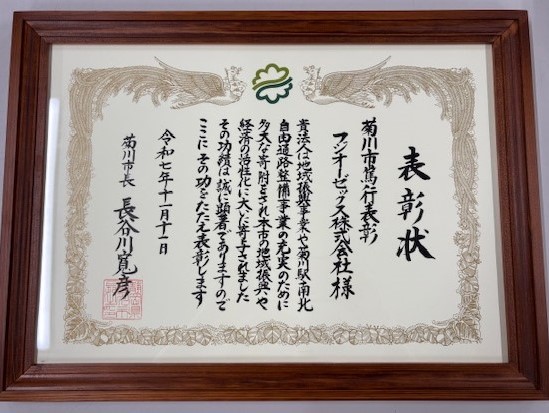 表彰状
菊川市篤行表彰
フジオーゼックス株式会社様
貴法人は地域振興事業や菊川駅南北
自由通路整備事業の充実のために
多大な寄附をされ本市の地域振興や
経済の活性化に大いに寄与されました
その功績は誠に顕著でありますので
ここにその功をたたえ表彰します
令和七年十一月十一日
菊川市長 長谷川寬彦